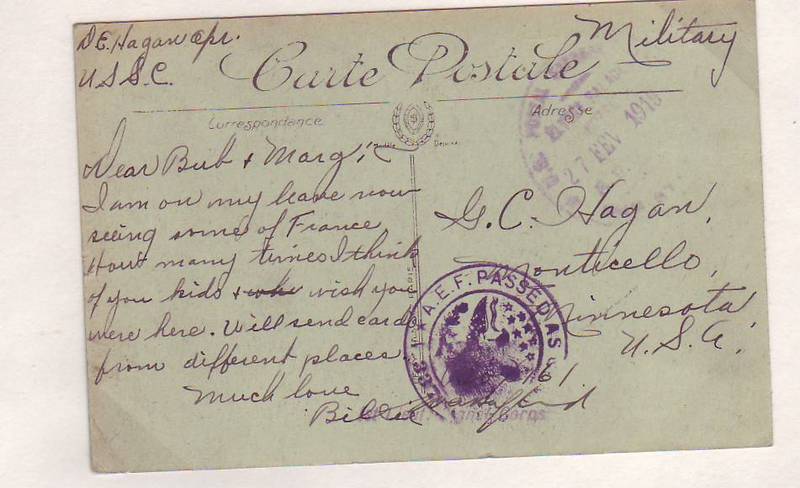 D.E. Hagan
U.S.S.C.
Military
Carte Postale
Correspondance
Adresse
27 FEV 1919
Dear Bub & Marg;
I am on my leave now
seeing some of France
How many times I think
of you kids & who wish you
were here. Will send cards
from different places.
Much love
Billie
G. C. Hagan,
Monticello,
Minnesota
U.S.A.
A.E.F. PASSED AS
161